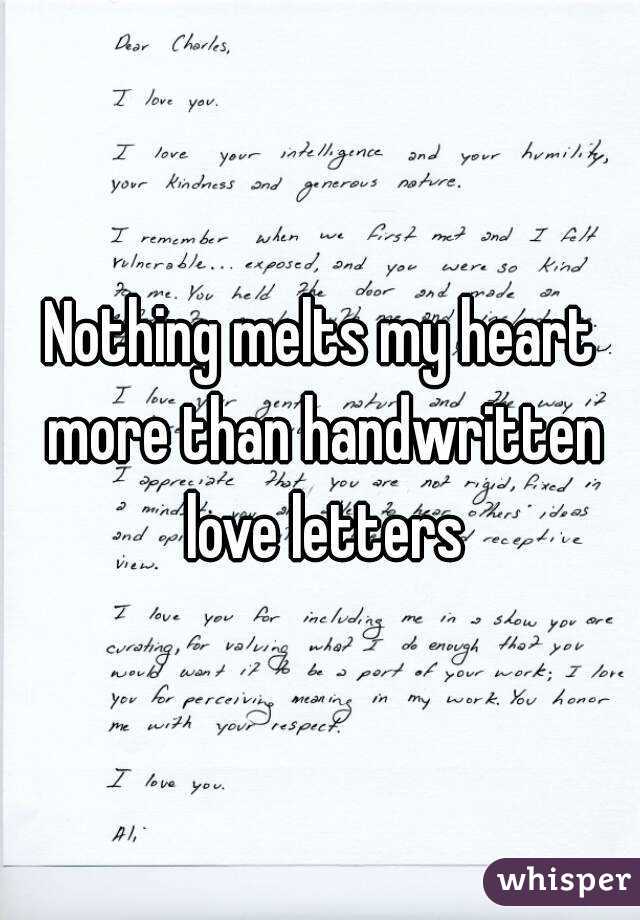 Dear Charles,
I love you.
I love your intelligence and your humility,
your kindness and generous nature.
I remember when we first met and I felt
vulnerable... exposed, and you were so kind
to me. You held the door and made an
Nothing melts my heart
I love your nature and the way it
more than handwritten
I appreciate that you are not rigid, fixed in
a others' ideas
love letters
and receptive
view.
I love you for including me in a show you are
curating, for valuing what I do enough that you
would want it to be a part of your work; I love
you for perceiving meaning in my work. You honor
me with your respect.
I love you.
Ali
whisper